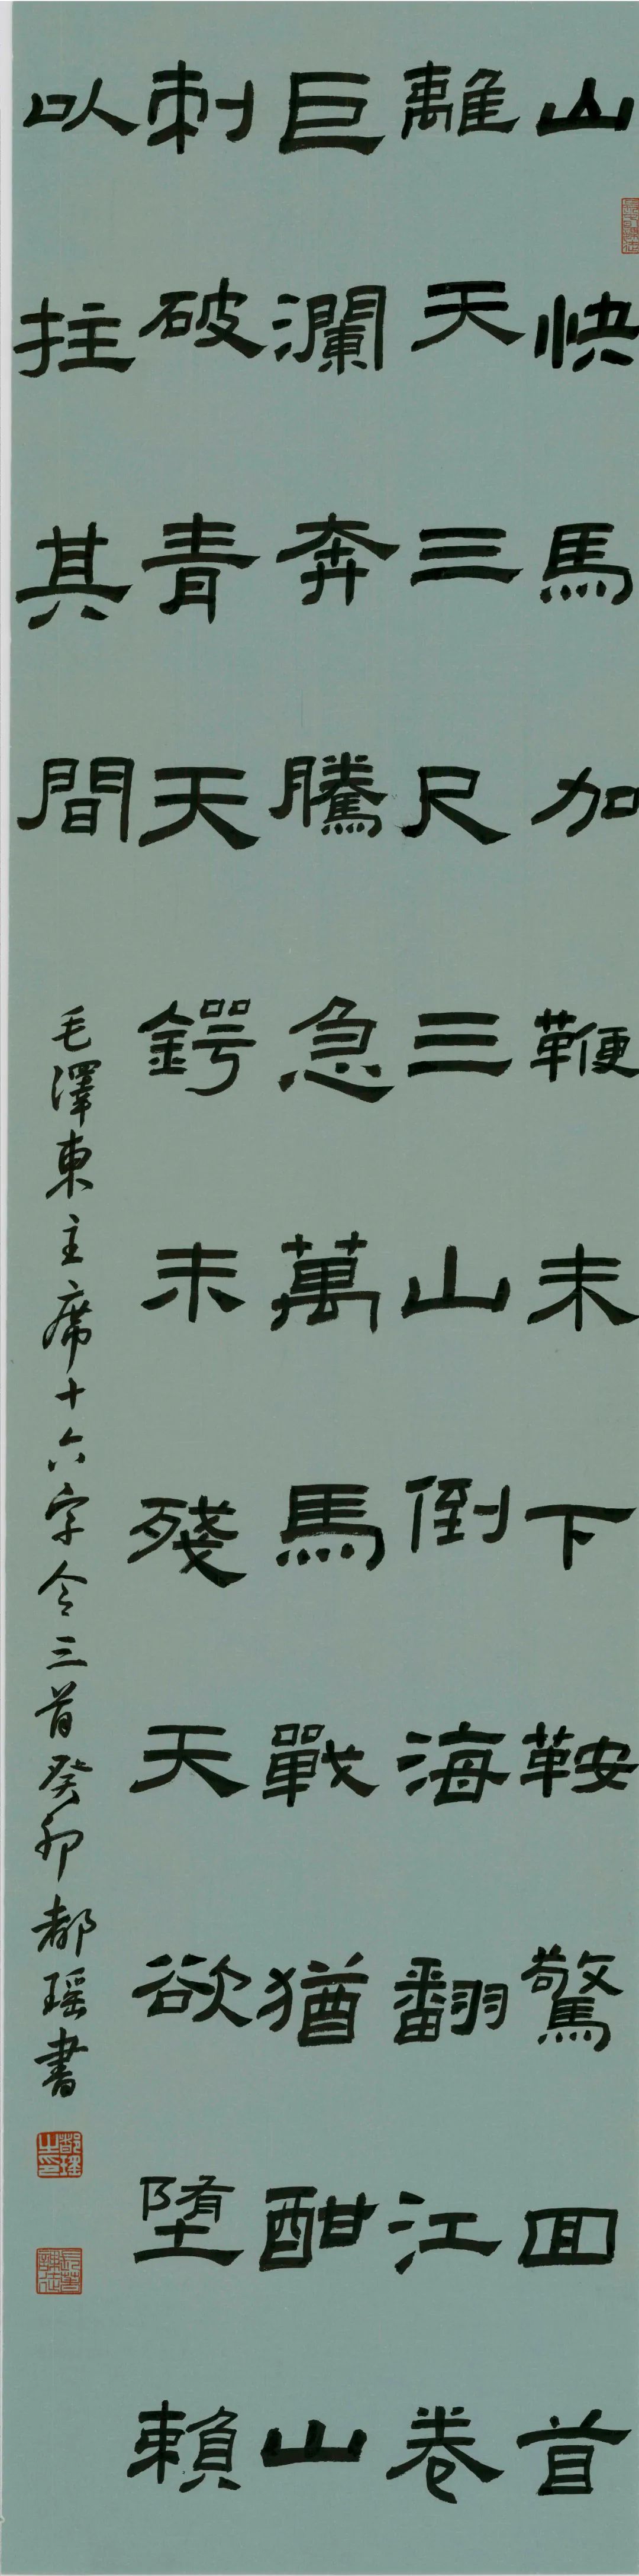 山快馬加鞭未下鞍驚回首
離天三尺三山倒海翻江卷
巨瀾奔騰急萬馬戰猶酣山
刺破青天鍔未殘天欲墮賴
以拄其間
毛澤東主席十六字令三首癸卯都瑶書